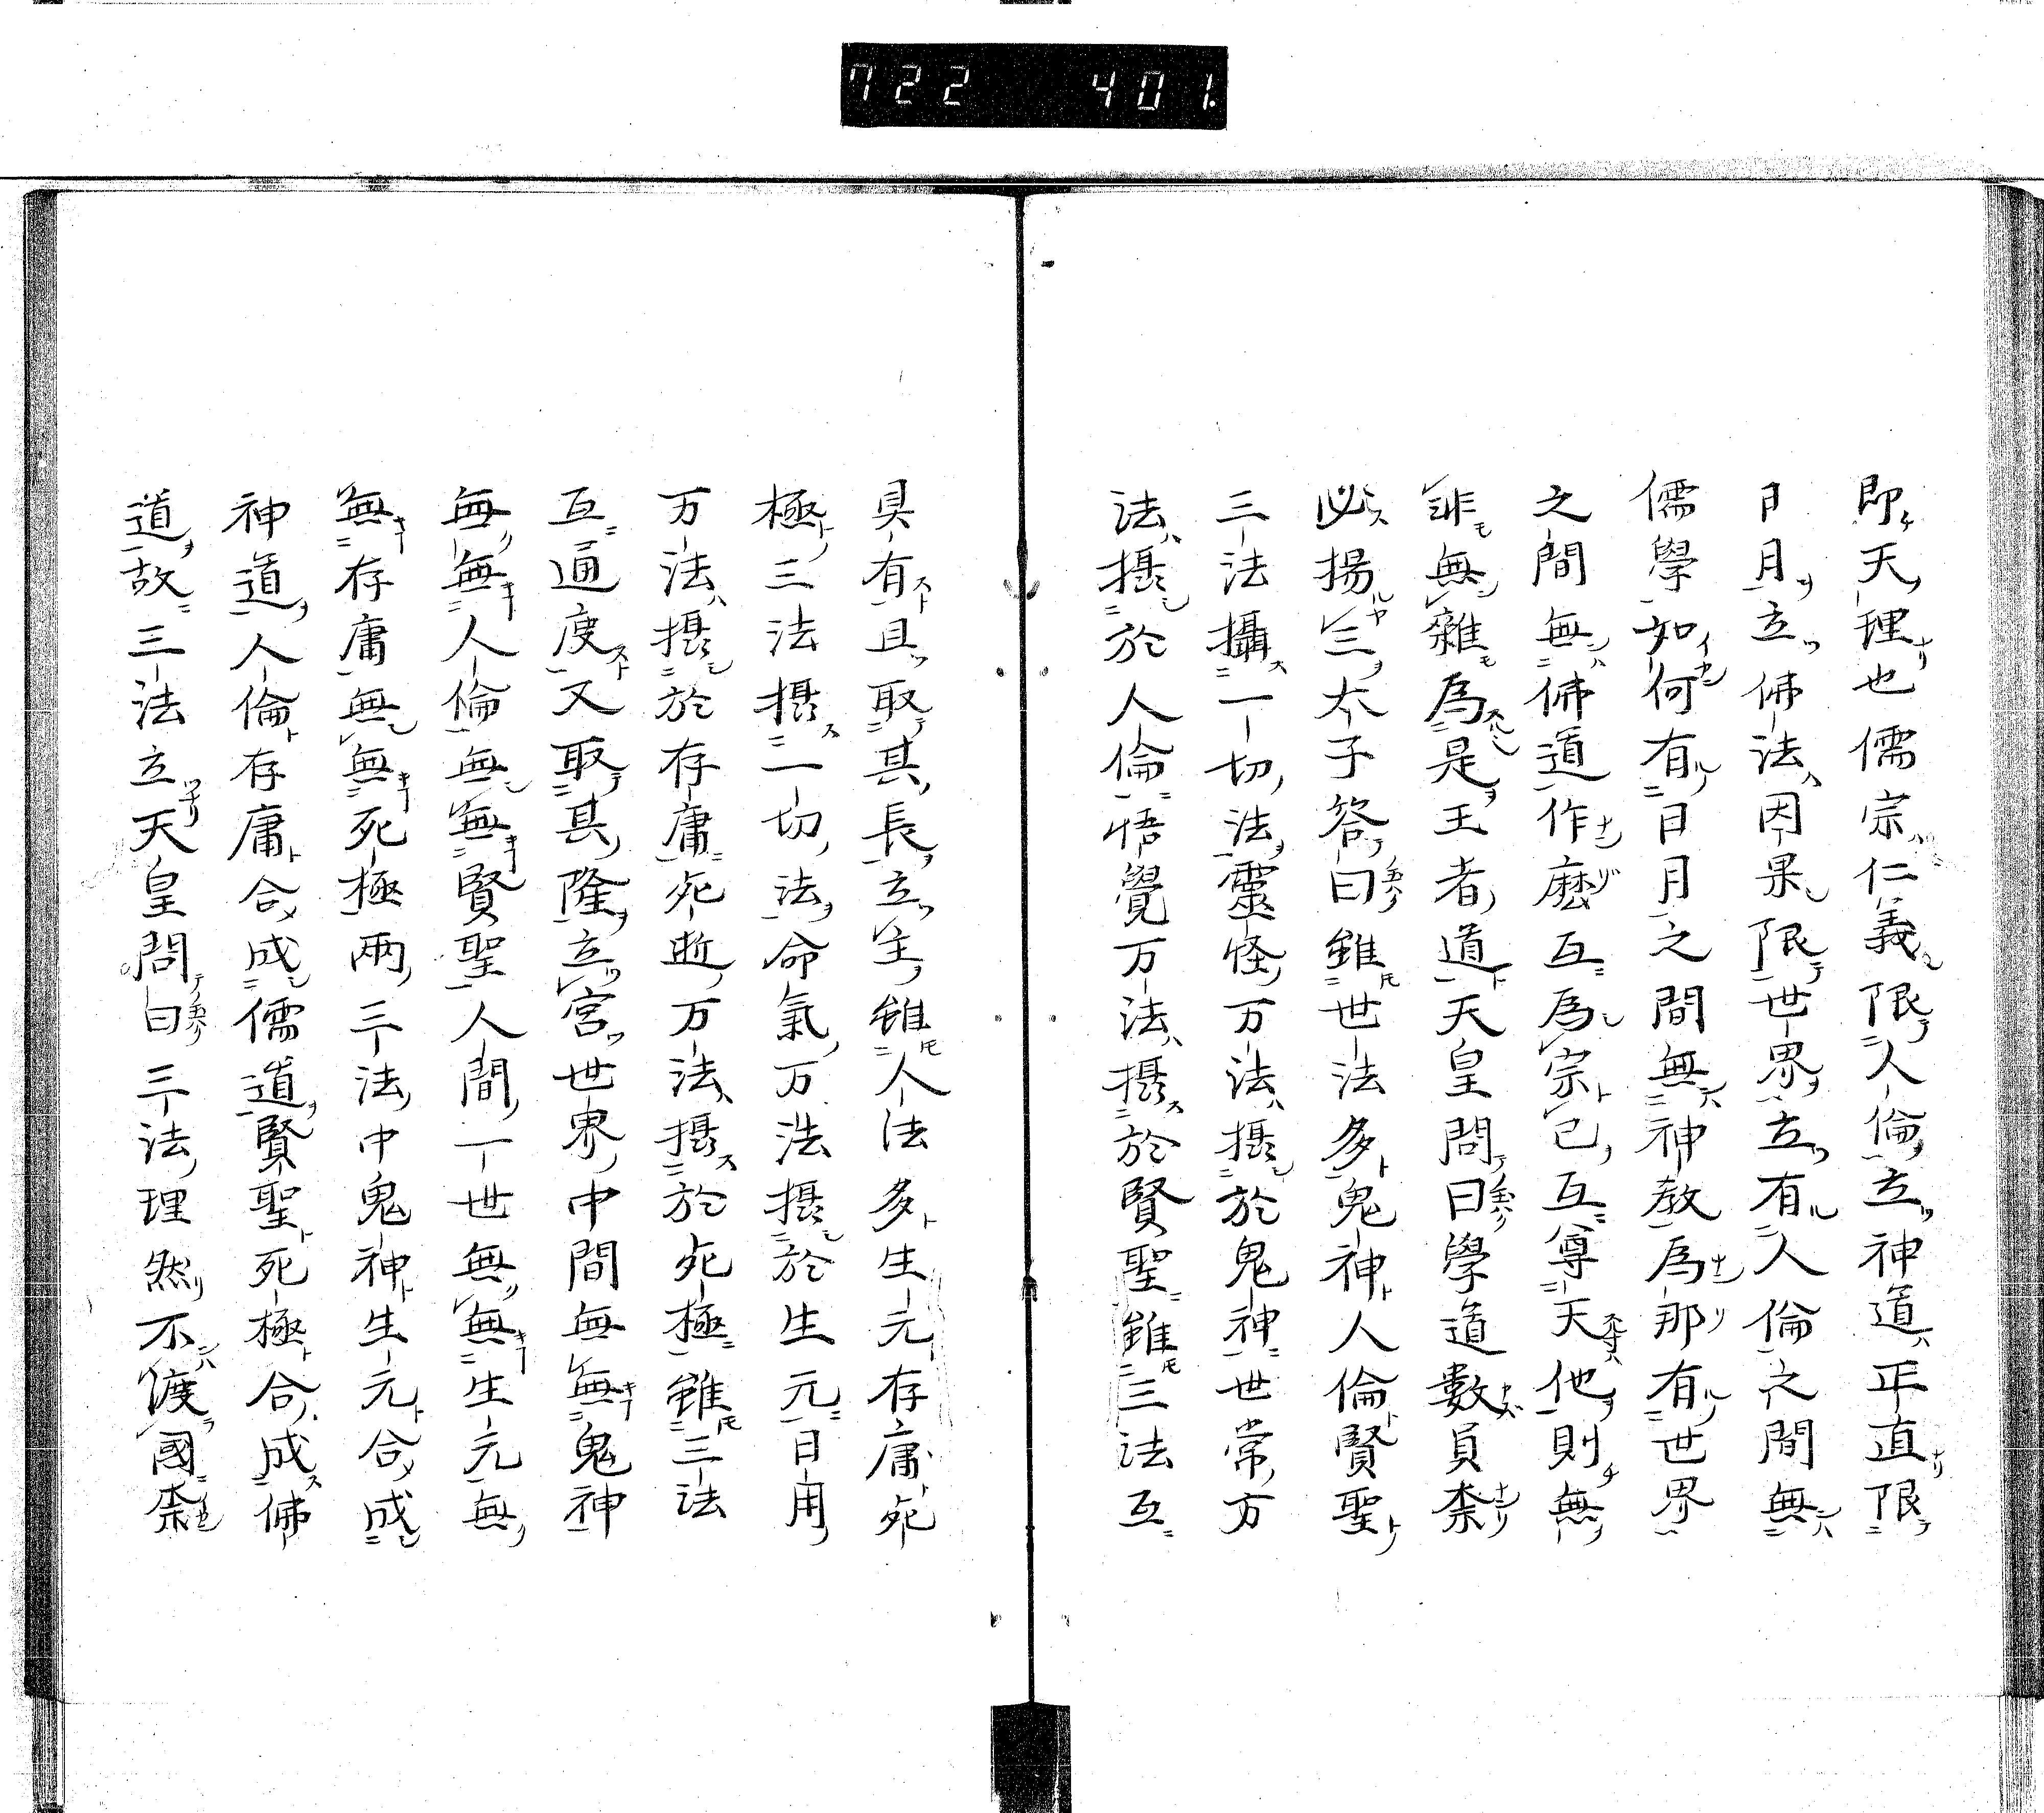 722 401.
即天理也儒宗仁義限人倫立神道正直限
日月立佛法因果限世界立有人倫之間無
儒學如何有日月之間無神教為那有世界
之間無佛道作麽互為宗已互尊天他則無
非無雜為是王者道天皇問曰學道數員柰
必揚三太子答曰雖世法多鬼神人倫賢聖
三法攝一切法靈怪万法攝於鬼神世常万
法攝於人倫悟覺万法攝於賢聖雖三法互
具有且取其長立主雖人法多生元存庸死
極三法攝一切法命氣万法攝於生元日用
万法攝於存庸死逝万法攝於死極雖三法
互通度又取其隆立宮世界中間無無鬼神
無無人倫無無賢聖人間一世無無生元無
無存庸無無死極兩三法中鬼神生元合成
神道人倫存庸合成儒道賢聖死極合成佛
道故三法立天皇問曰三法理然不渡國柰